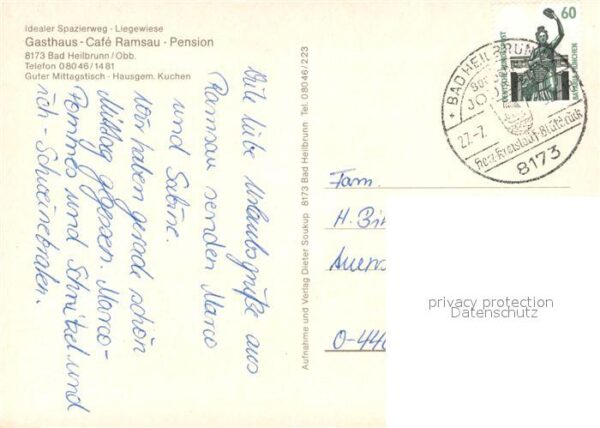 Idealer Spazierweg · Liegewiese
Gasthaus - Café Ramsau · Pension
8173 Bad Heilbrunn/Obb.
Telefon 08046/1481
Guter Mittagstisch - Hausgem. Kuchen
Viele liebe Urlaubsgrüße aus
Ramsau senden Marco
und Sabine.
Wir haben gerade schön
Mittag gegessen. Marco -
Pommes und Schnitzel und
ich - Schweinebraten.
Aufnahme und Verlag Dieter Soukup 8173 Bad Heilbrunn Tel. 08046/223
60
DEUTSCHE BUNDESPOST
BAVARIA MÜNCHEN
BAD HEILBRUNN
27.-7.
Herz-Kreislauf-Blutdruck
8173
Fam.
H. Bi
Auers
O-440
privacy protection
Datenschutz